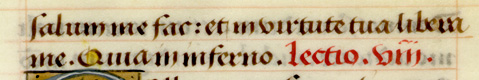 salum me fac: et in virtute tua libera
me. Quia in inferno. Lectio. viii.